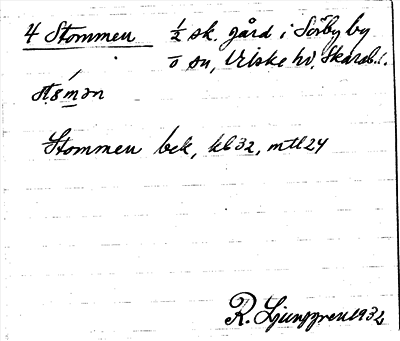 4 Stommen ½ sk. gård i Sörby by
ō sn, Vilske hd, Skarab. l.
Stommen bek, kb32, mtl24
R. Ljunggren 1932